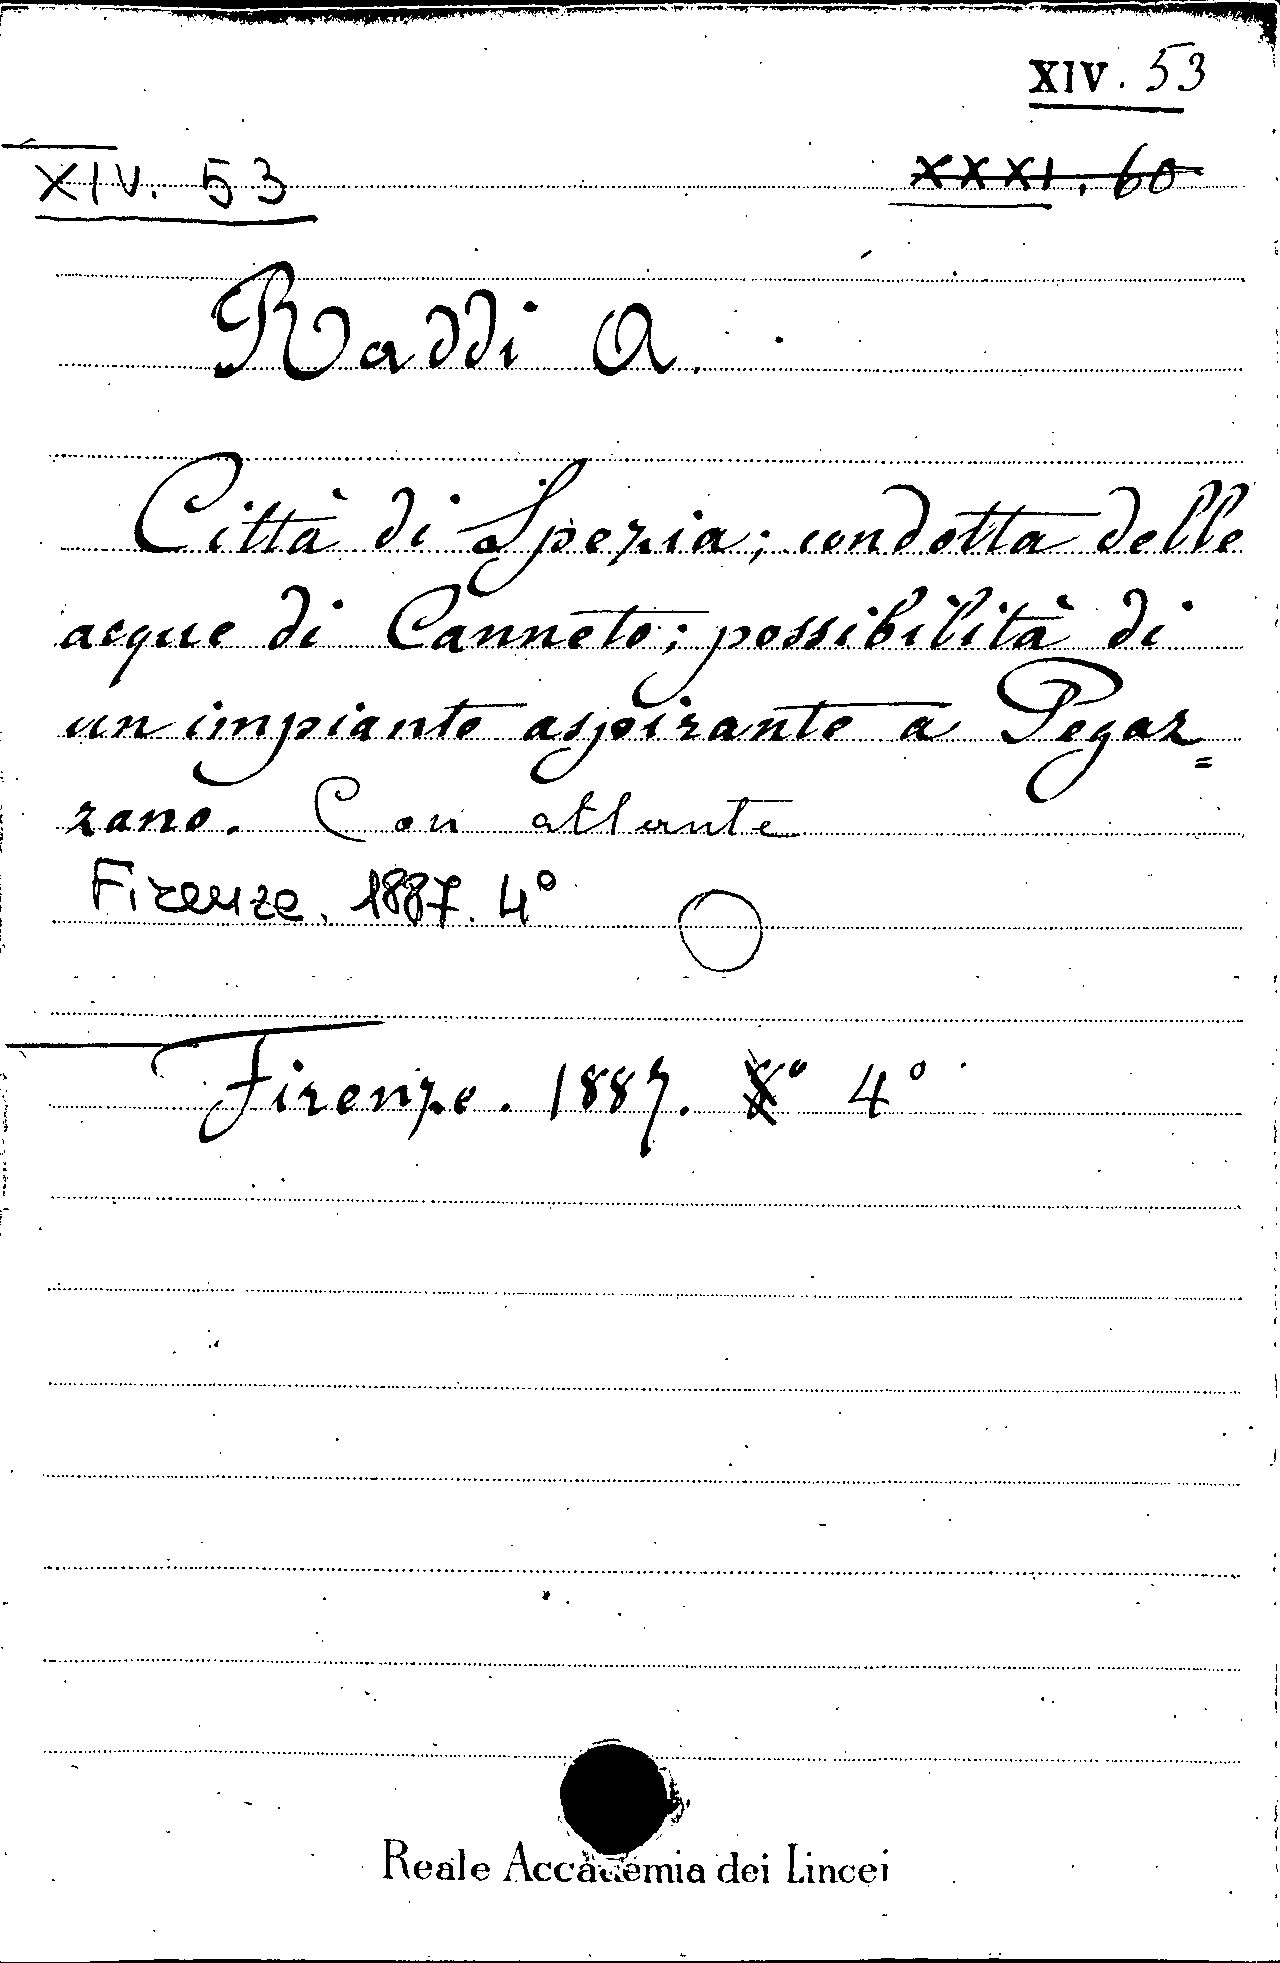 XIV. 53
XIV. 53 XXXI. 60
Raddi A.
Città di Spezia; condotta delle
acque di Canneto; possibilità di
un impianto aspirante a Pegaz=
zano. Con atlante
Firenze. 1887. 4°
Firenze. 1887. 8° 4°
Reale Accademia dei Lincei